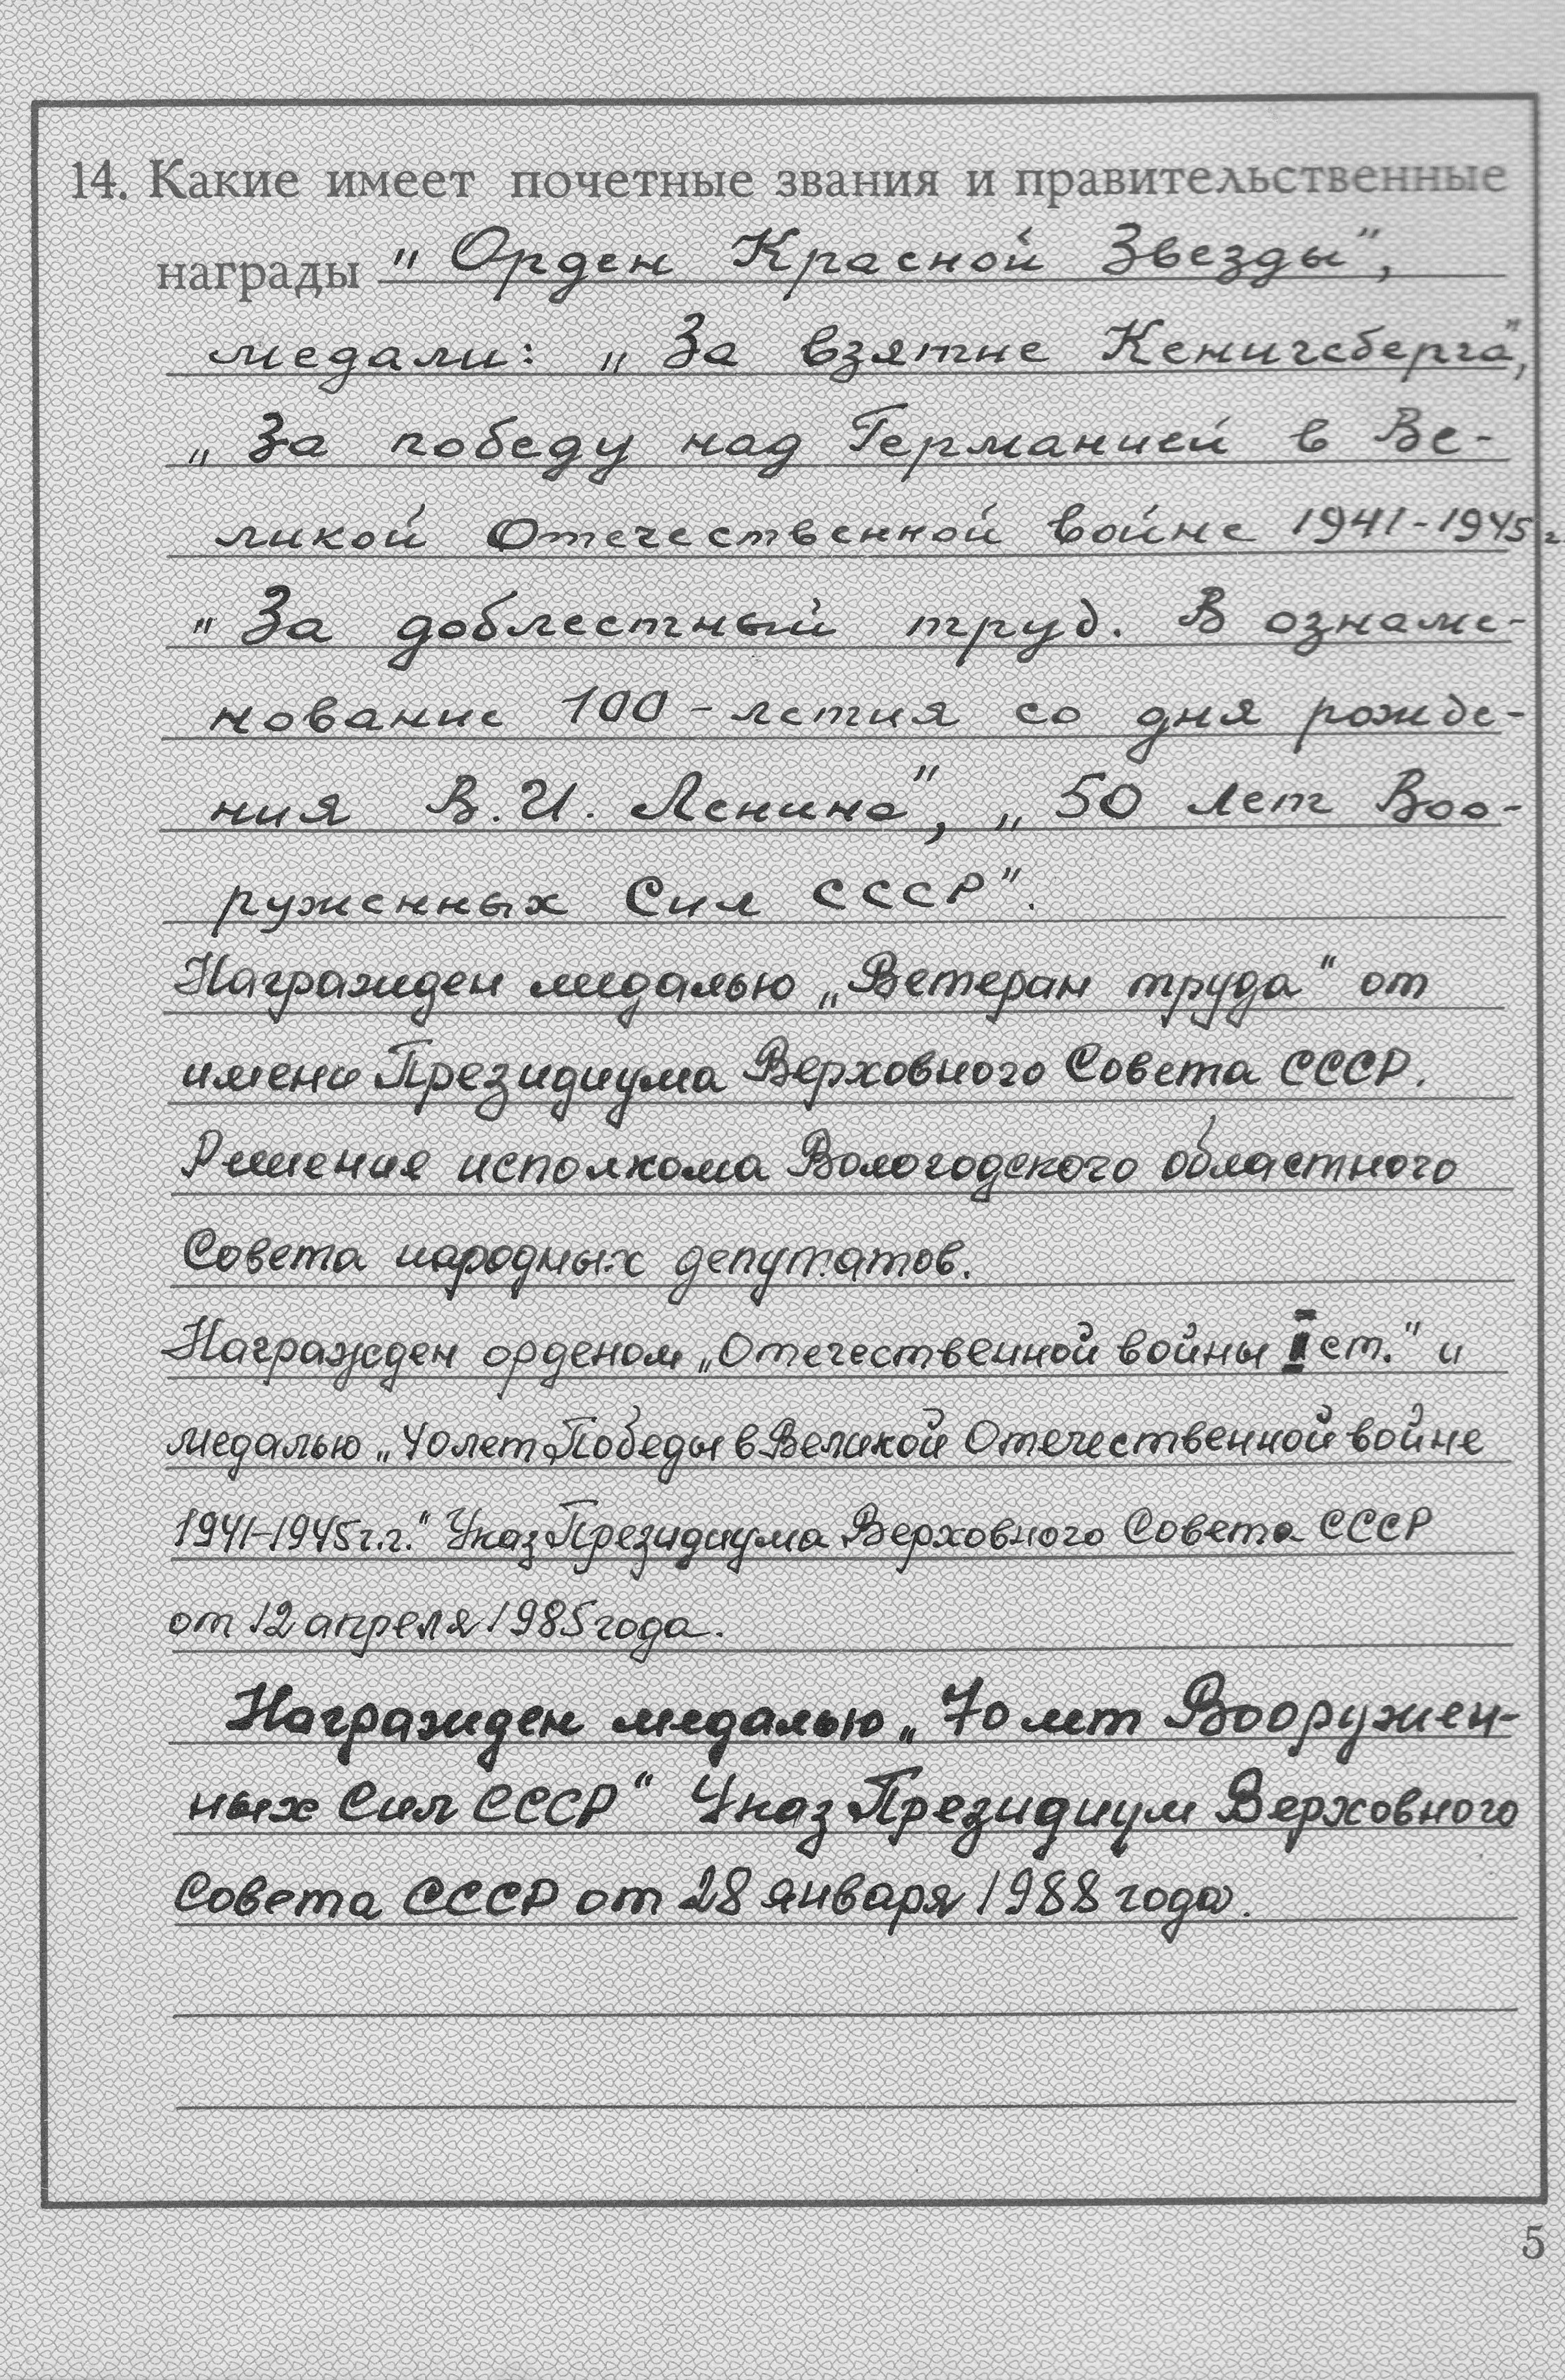 14. Какие имеет почетные звания и правительственные
награды „Орден Красной Звезды",
медали: „За взятие Кенигсберга",
„За победу над Германией в Ве-
ликой Отечественной войне 1941-1945г
„За доблестный труд. В ознаме-
нование 100-летия со дня рожде-
ния В.И. Ленина", „50 лет Воо-
руженных Сил СССР".
Награжден медалью „Ветеран труда" от
имени Президиума Верховного Совета СССР.
Решение исполкома Вологодского областного
Совета народных депутатов.
Награжден орденом „Отечественной войны II ст." и
медалью „40 лет Победы в Великой Отечественной войне
1941-1945г.г." Указ Президиума Верховного Совета СССР
от 12 апреля 1985 года.
Награжден медалью „70 лет Вооружен-
ных Сил СССР" Указ Президиум Верховного
Совета СССР от 28 января 1988 года.
5